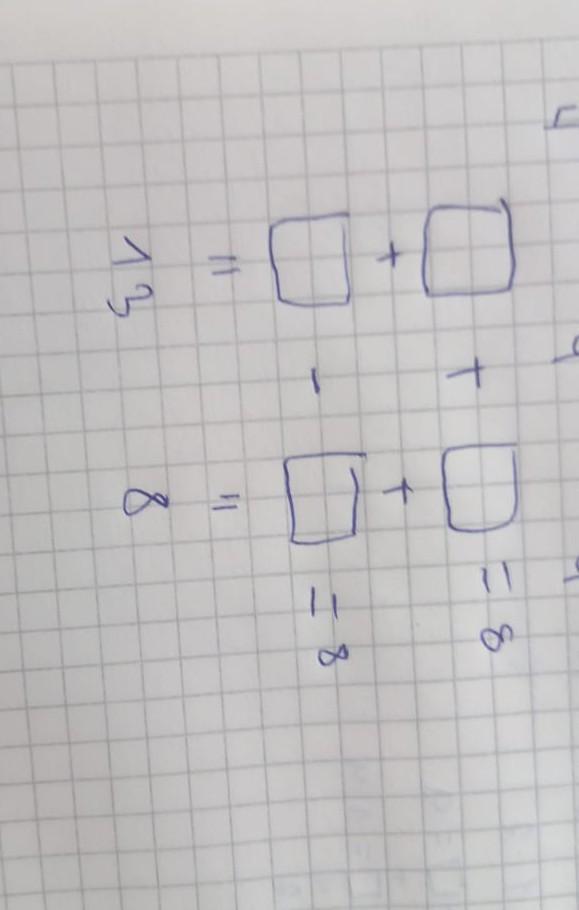 □ + □ = 8
+ +
□ - □ = 8
= =
13 8